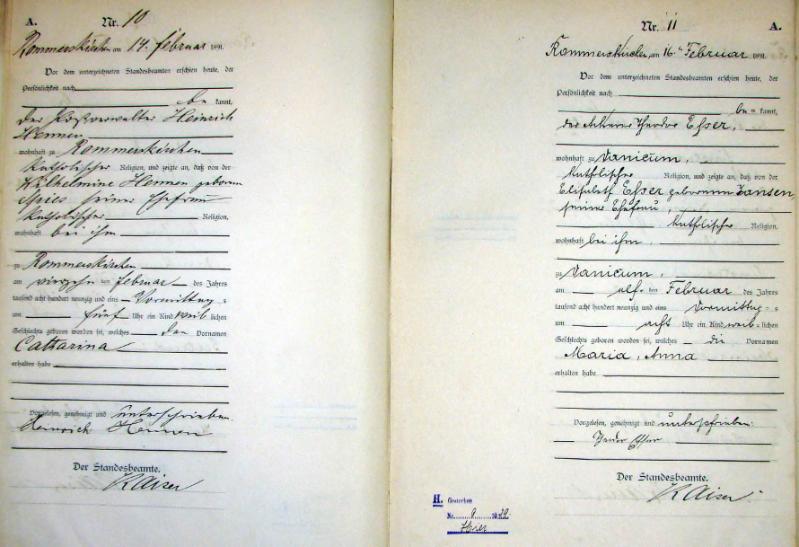 A.
Nr. 10
Rommerskirchen am 14. Februar 1891.
Vor dem unterzeichneten Standesbeamten erschien heute, der
Persönlichkeit nach
be kannt,
der Postverwalter Heinrich
Hennen
wohnhaft zu Rommerskirchen
katholischer Religion, und zeigte an, daß von der
Wilhelmine Hennen geborene
Mies seiner Ehefrau
katholischer Religion,
wohnhaft bei ihm
zu Rommerskirchen
am vierzehn ten Februar des Jahres
tausend acht hundert neunzig und eins Vormittag =
um fünf Uhr ein Kind weib lichen
Geschlechts geboren worden sei, welches den Vornamen
Catharina
erhalten habe
Vorgelesen, genehmigt und unterschrieben.
Heinrich Hennen
Der Standesbeamte.
Kaiser
Nr. 11
A.
Rommerskirchen, am 16. Februar 1891.
Vor dem unterzeichneten Standesbeamten erschien heute, der
Persönlichkeit nach
be = kannt,
der Ackerer Theodor Esser,
wohnhaft zu Vanicum,
katholischer Religion, und zeigte an, daß von der
Elisabeth Esser geborenen Jansen
seiner Ehefrau,
katholischer Religion,
wohnhaft bei ihm,
zu Vanicum,
am elf ten Februar des Jahres
tausend acht hundert neunzig und eins Vormittag =
um acht Uhr ein Kind weib = lichen
Geschlechts geboren worden sei, welches die Vornamen
Maria, Anna
erhalten habe
Vorgelesen, genehmigt und unterschrieben.
Esser
Der Standesbeamte.
Kaiser
H. Gestorben
Nr.